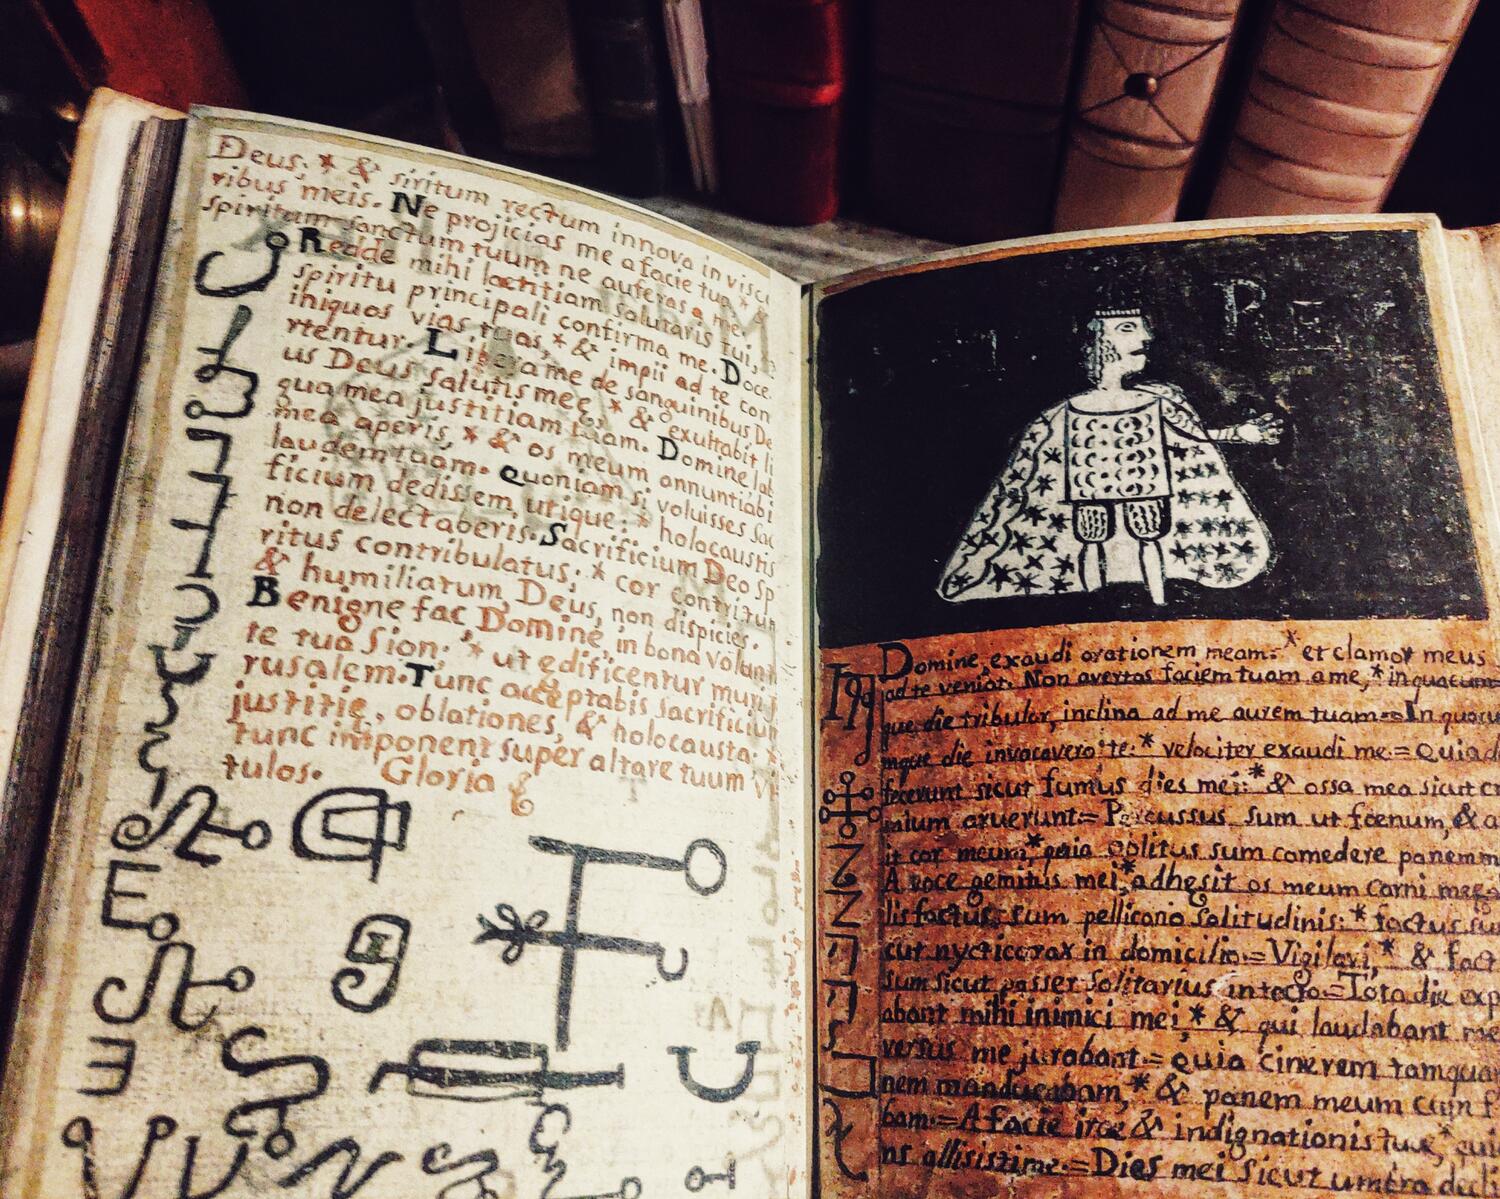 Deus, * & siritum rectum innova in visce
ribus meis. Ne projicias me a facie tua * &
spiritum sanctum tuum ne auferas a me.
Redde mihi laetitiam salutaris tui, *
spiritu principali confirma me. Doce
ihiquos vias tuas, * & impii ad te con
rtentur. Libera me de sanguinibus De
us Deus salutis meę, * & exultabit li
qua mea justitiam tuam. Domine lab
mea aperis, * & os meum annuntiabi
laudem tuam. Quoniam si voluisses sac
ficium dedissem, utique: * holocaustis
non delectaberis. Sacrificium Deo sp
ritus contribulatus: * cor contritum
& humiliatum, Deus, non dispicies.
Benigne fac Domine, in bona volunt
te tua Sion: * ut ędificentur muri
rusalem. Tunc acceptabis sacrificium
justitię, oblationes, & holocausta: *
tunc imponent super altare tuum vi
tulos. Gloria &
REX
Domine, exaudi orationem meam: * et clamor meus
ad te veniat. Non avertas faciem tuam a me, * in quacum=
que die tribulor, inclina ad me aurem tuam = In quacu
mque die invocavero te: * velociter exaudi me = Quia d
fecerunt sicut fumus dies mei: * & ossa mea sicut cr
mium aruerunt = Percussus sum ut fœnum, & a
it cor meum, * quia oblitus sum comedere panem m
A voce gemitus mei, * adhęsit os meum carni meę =
lis factus sum pellicano solitudinis: * factus su
cut nycticorax in domicilio = Vigilavi, * & fact
sum sicut passer solitarius in tecto = Tota die exp
abant mihi inimici mei, * & qui laudabant me
versus me jurabant = Quia cinerem tamqua
nem manducabam, * & panem meum cum f
bam = A facie irae & indignationis tuę, * qui
ns allisisti me = Dies mei sicut umbra decli